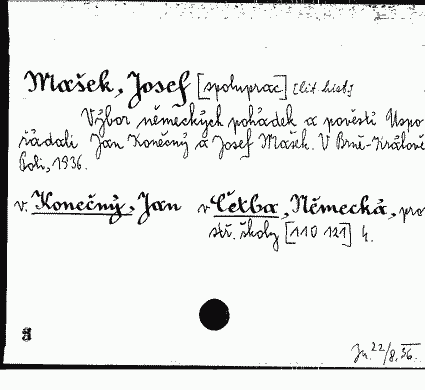 Mašek, Josef [spoluprac] [lit. hist.]
Výbor německých pohádek a pověstí Uspo
řádali Jan Konečný a Josef Mašek. V Brně-Králově
Poli, 1936.
v. Konečný, Jan v Četba, Německá, pro
stř. školy [110 121] 4.
22/8. 36.